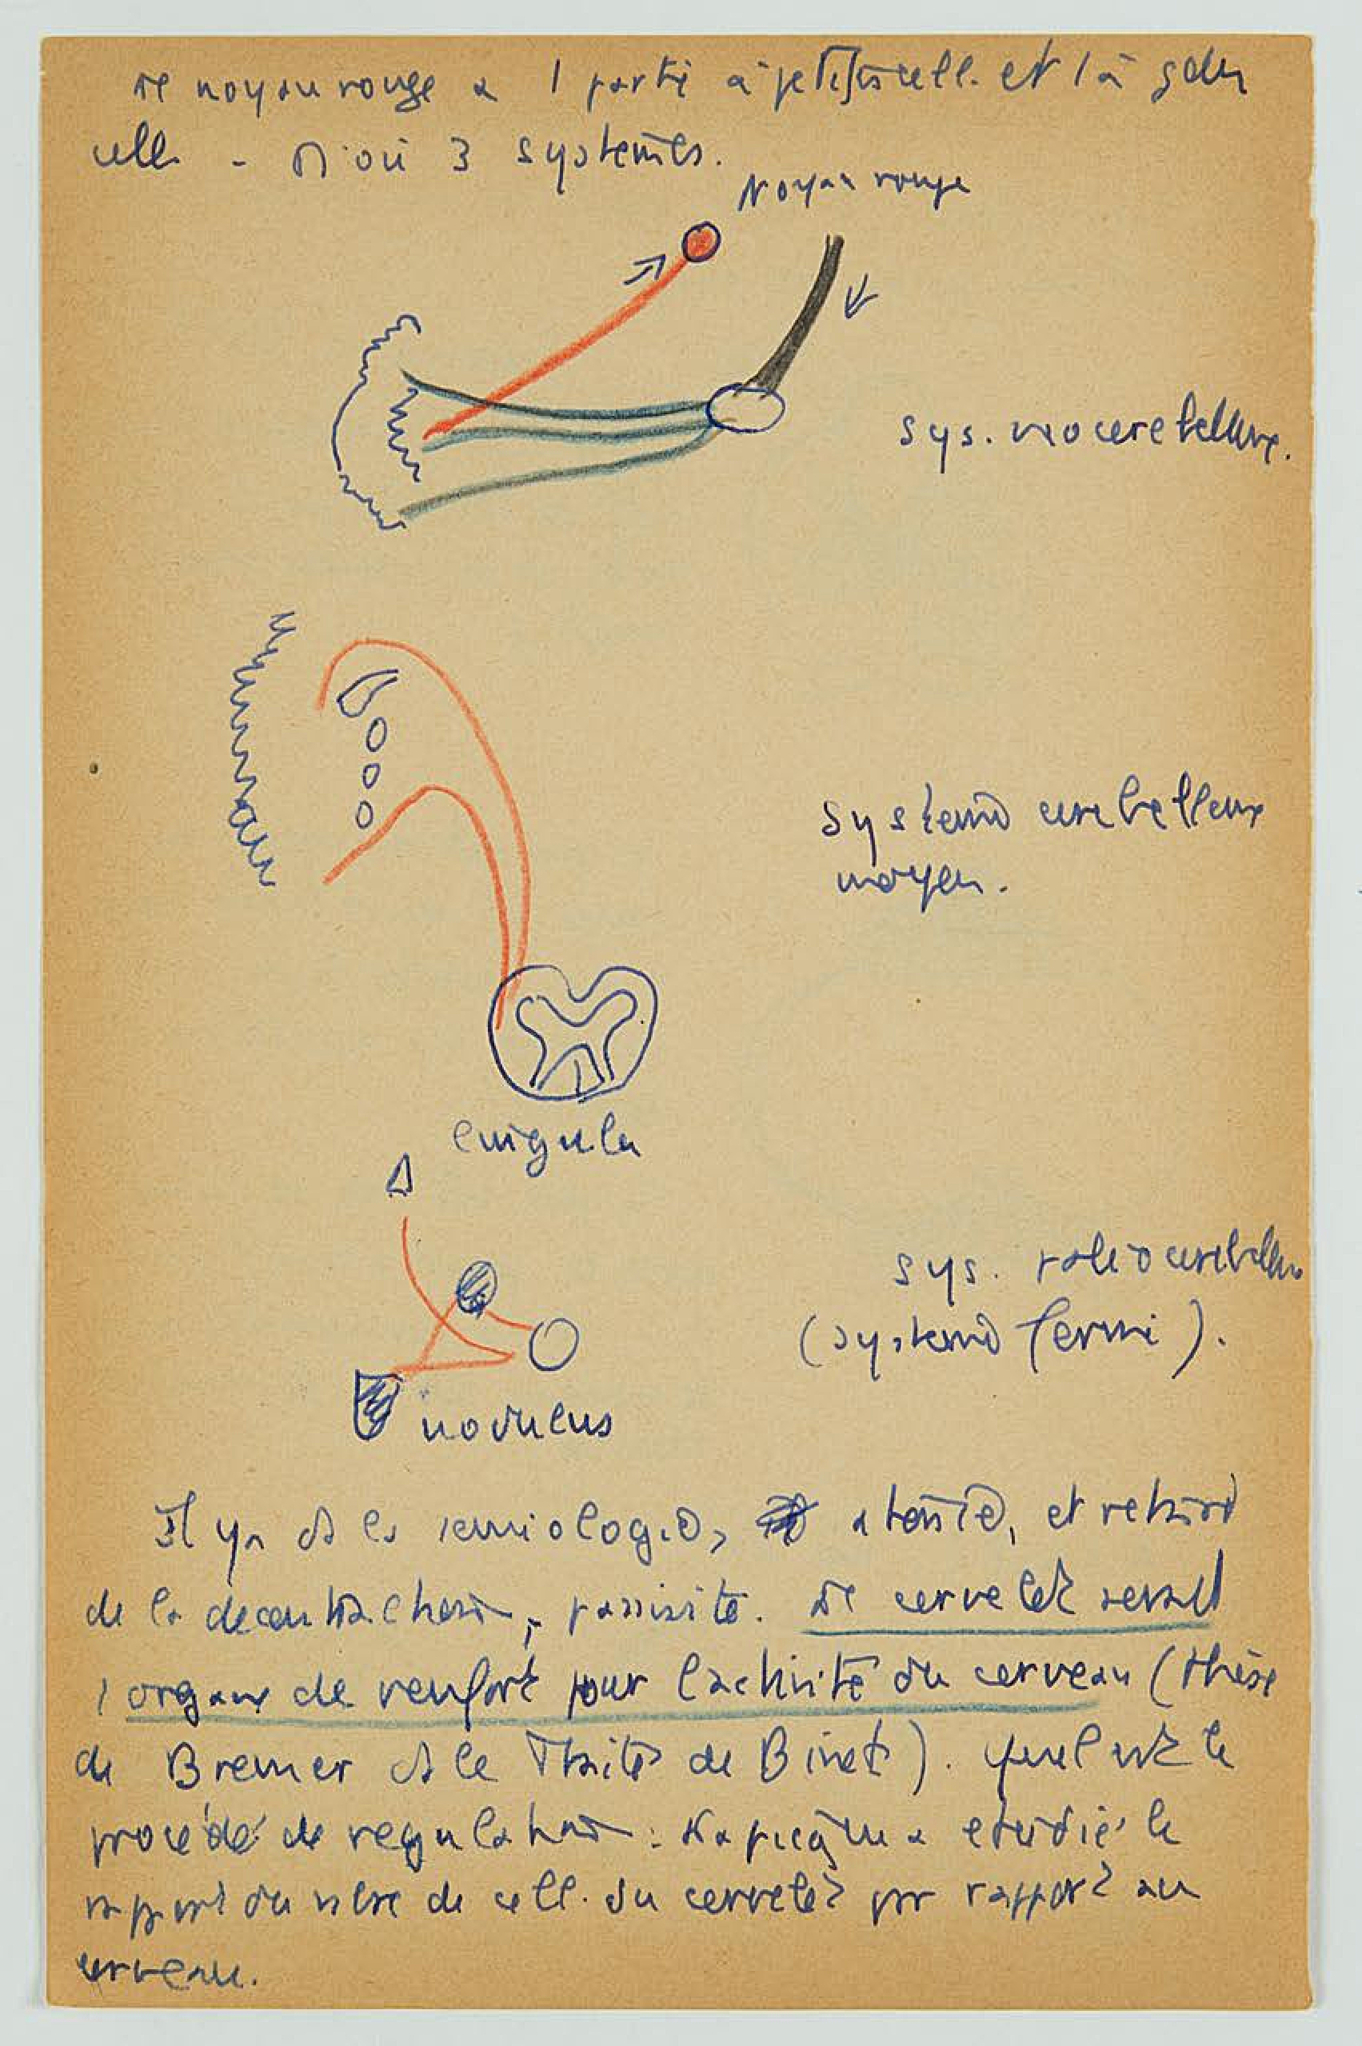 Le noyau rouge a 1 partie à petites cell. et 1 à gdes
cell. - D'où 3 systèmes.
Noyau rouge
sys. néocerebelleux.
système cerebelleux
moyen.
lingula
sys. paléocerebelleux
(système fermé).
nodulus
Il y a ds la semiologie, atonie, et retard
de la décontraction, passivité. Le cervelet serait
1 organe de renfort pour l'activité du cerveau (thèse
de Bremer ds le Traité de Binet). Quel est le
procédé de regulation : Lapicque a etudié le
rapport du nbre de cell. du cervelet par rapport au
cerveau.